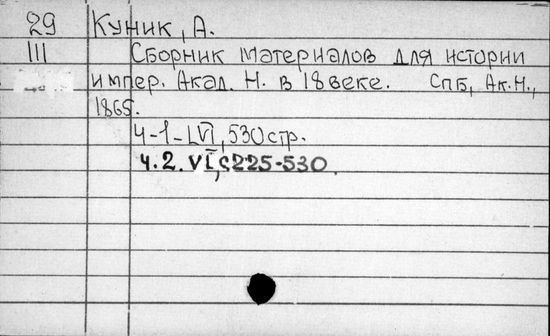 29 Куник, А.
III Сборник материалов для истории
импер. Акад. Н. в 18 веке. СПб, Ак.Н.,
1865.
ч-1-LVI, 530 стр.
ч.2. VI, с 225-530.